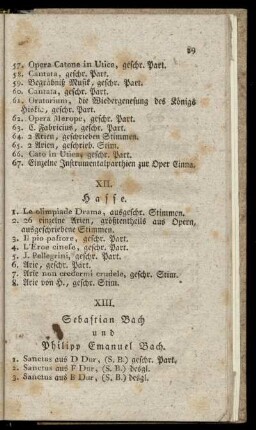 29
57. Opera Catone in Utica, geschr. Part.
58. Cantata, geschr. Part.
59. Begräbniß Musik, geschr. Part.
60. Cantata, geschr. Part.
61. Oratorium, die Wiedergenesung des Königs
Hiskia, geschr. Part.
62. Opera Merope, geschr. Part.
63. C. Fabricius, geschr. Part.
64. 2 Arien, geschrieben Stimmen.
65. 2 Arien, geschrieb. Stim.
66. Cato in Utica, geschr. Part.
67. Einzelne Instrumentalparthien zur Oper Cinna.
XII.
Hasse.
1. Le olimpiade Drama, ausgeschr. Stimmen.
2. 26 einzelne Arien, größtentheils aus Opern,
ausgeschriebene Stimmen.
3. Il pio pastore, geschr. Part.
4. L'Eroe cinese, geschr. Part.
5. I. Pellegrini, geschr. Part.
6. Arie, geschr. Part.
7. Arie non credermi crudele, geschr. Stim.
8. Arie von H., geschr. Stim.
XIII.
Sebastian Bach
und
Philipp Emanuel Bach.
1. Sanctus aus D Dur, (S. B.) geschr. Part.
2. Sanctus aus F Dur, (S. B.) desgl.
3. Sanctus aus E Dur, (S. B.) desgl.